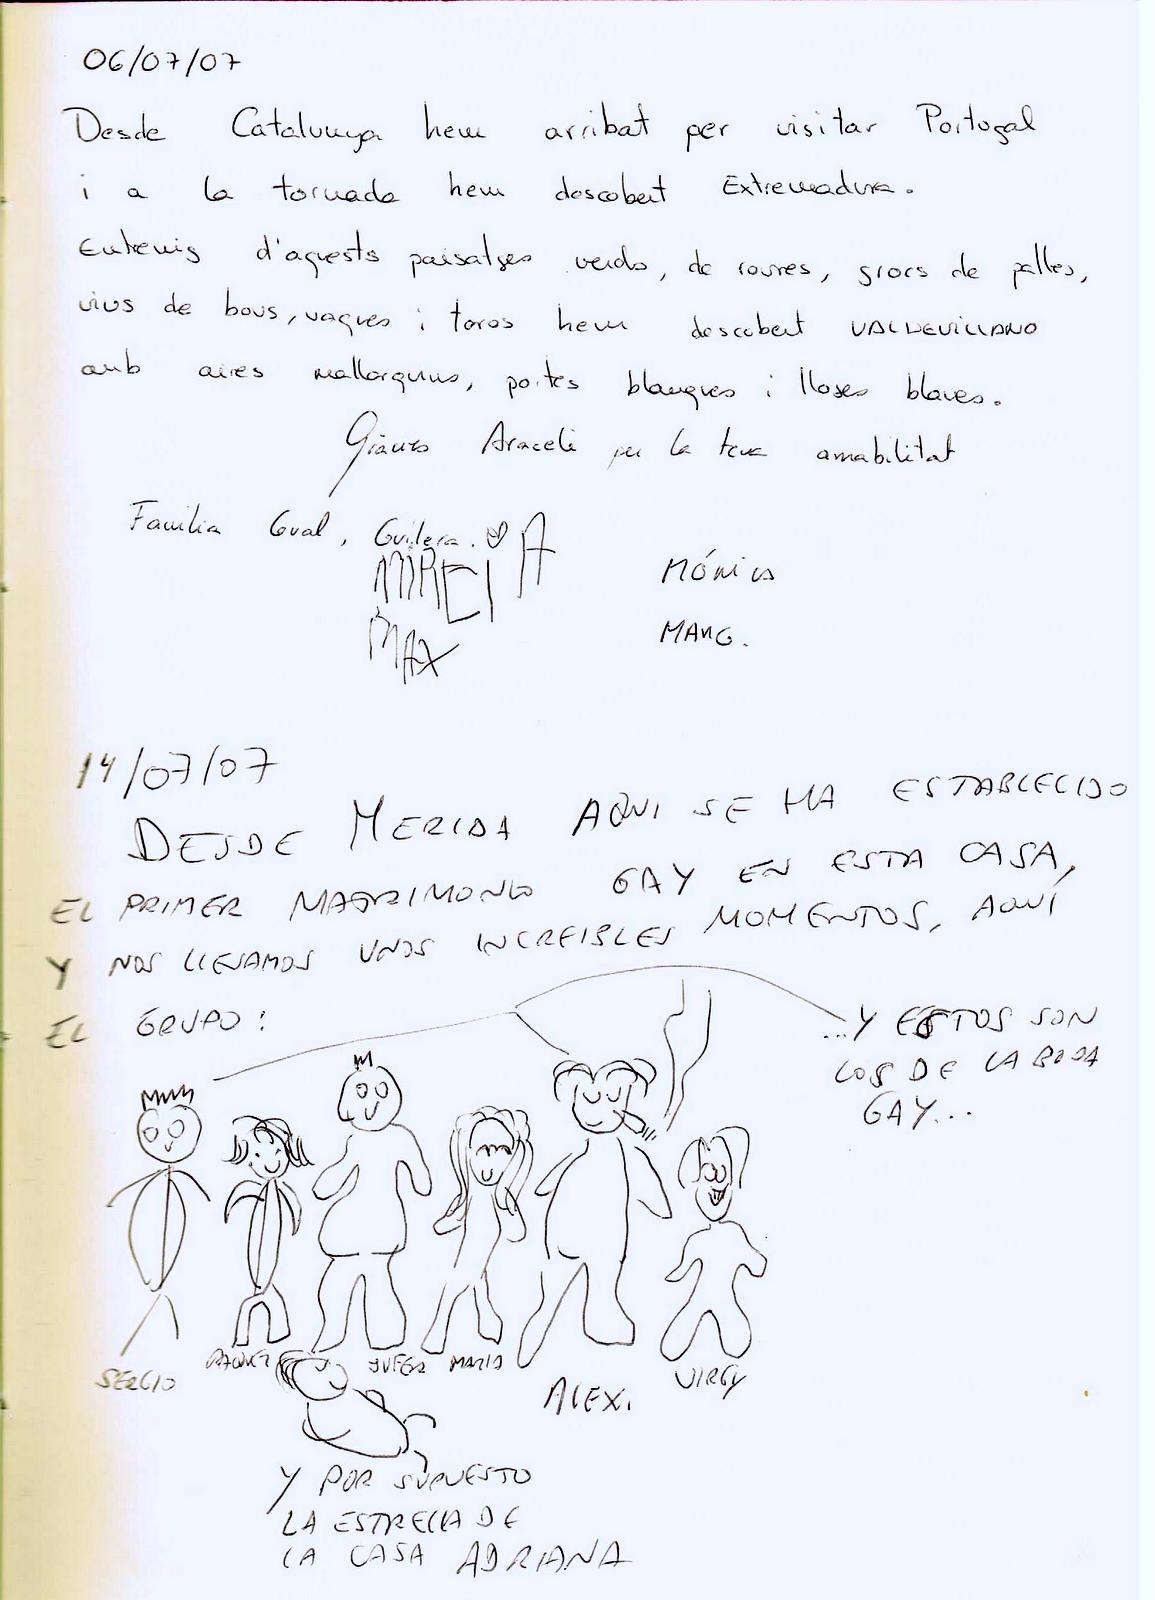 06/07/07
Desde Catalunya hem arribat per visitar Portugal
i a la tornada hem descobert Extremadura.
Entremig d'aquests paisatges verds, de roures, grocs de palles,
vius de bous, vaques i toros hem descobert VALDEVILLANO
amb aires mallorquins, portes blanques i lloses blaves.
Gràcies Araceli per la teva amabilitat
Família Gual, Guilera.
MIREIA MÓNICA
MAX MARG.
14/07/07
DESDE MERIDA AQUI SE HA ESTABLECIDO
EL PRIMER MATRIMONIO GAY EN ESTA CASA,
Y NOS LLEVAMOS UNOS INCREIBLES MOMENTOS, AQUÍ
EL GRUPO:
...Y ESTOS SON
LOS DE LA BODA
GAY...
SERGIO MARIA ALEX. VIRGY
Y POR SUPUESTO
LA ESTRELLA DE
LA CASA ADRIANA